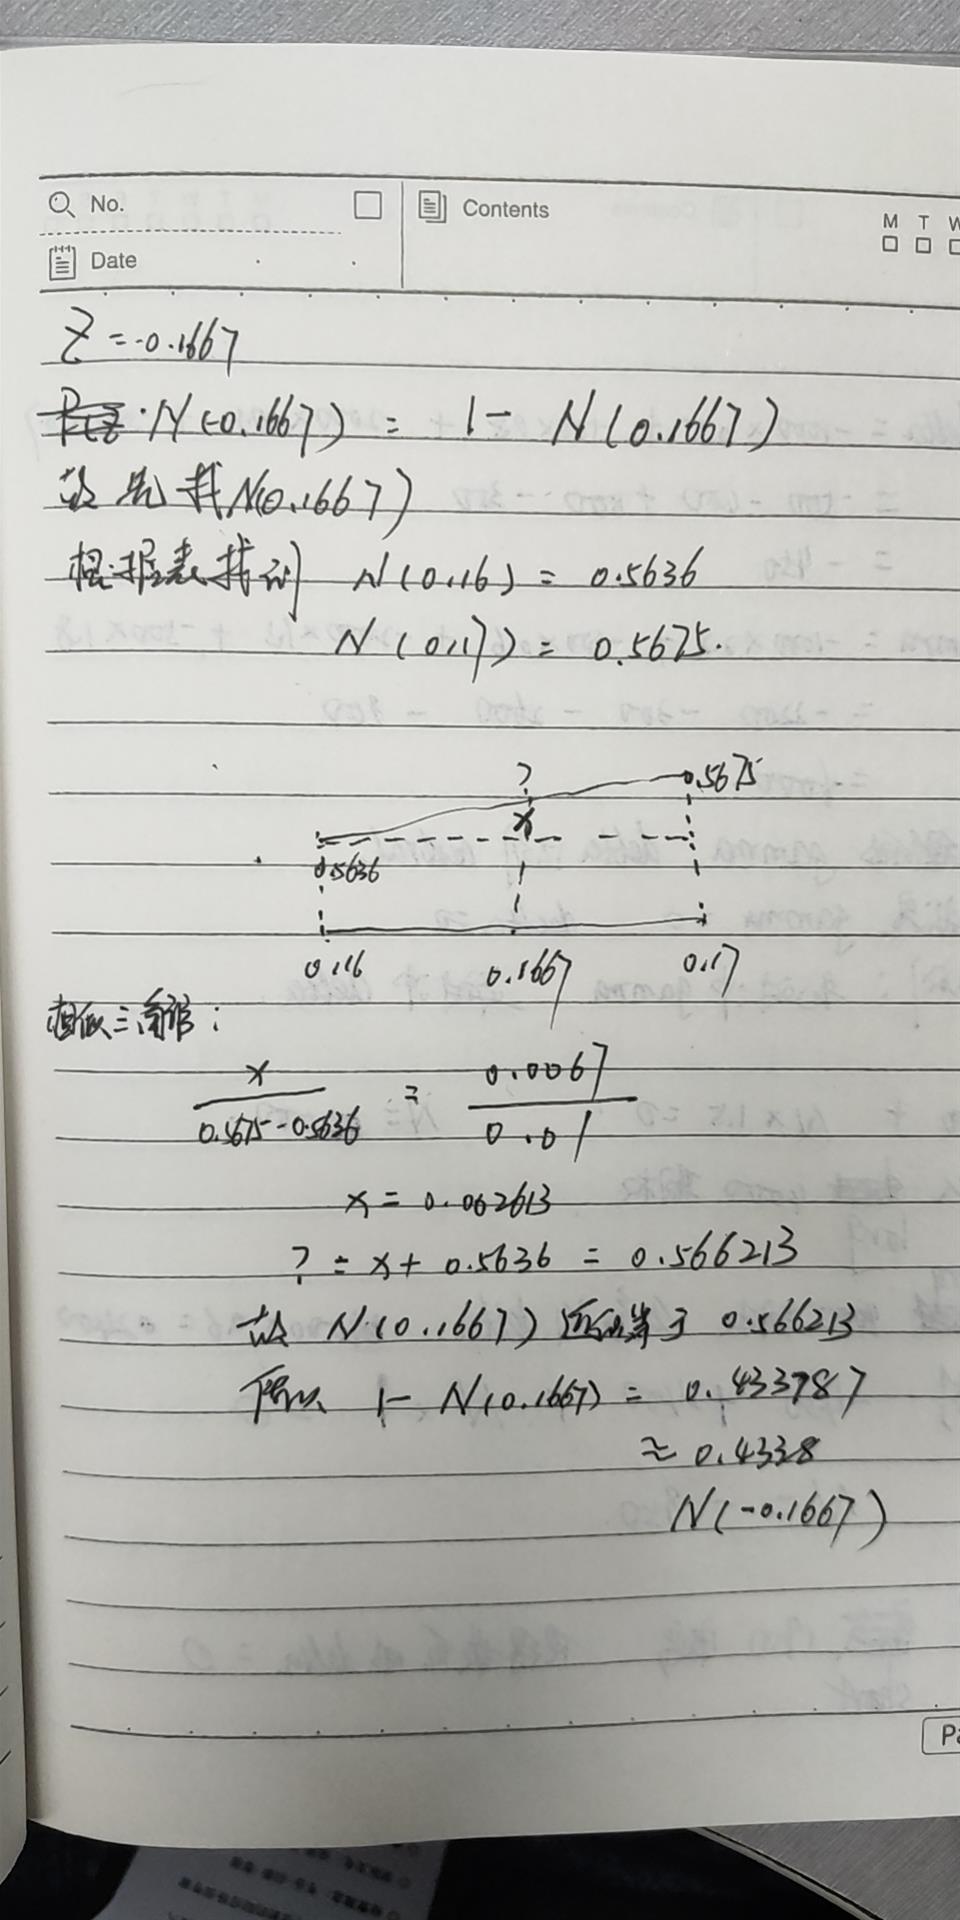 No.
Contents
M T W
Date
Z = -0.1667
N(-0.1667) = 1 - N(0.1667)
故先找N(0.1667)
根据表找到 N(0.16) = 0.5636
N(0.17) = 0.5675.
?
0.5675
x
0.5636
0.16 0.1667 0.17
相似三角形:
x / 0.5675-0.5636 = 0.0067 / 0.01
x = 0.002613
? = x + 0.5636 = 0.566213
故 N(0.1667) 近似等于 0.566213
所以 1 - N(0.1667) = 0.433787
≈ 0.4338
N(-0.1667)
Pa